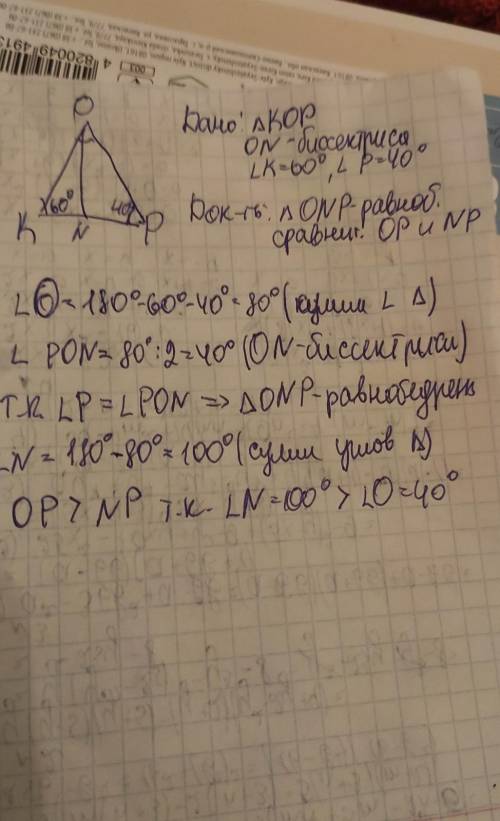 4 820049 4913
003
O
K 60° 40° P
N
Дано: ΔKOP
ON-биссектриса
∠K=60°, ∠P=40°
Док-ть: ΔONP-равноб.
сравнит. OP и NP
∠O=180°-60°-40°=80° (сумми ∠ Δ)
∠ PON=80°:2=40° (ON-биссектриси)
т.к. ∠P=∠PON => ΔONP-равнобедрен
∠N=180°-80°=100° (сумми углов Δ)
OP > NP т.к. ∠N=100° > ∠O=40°